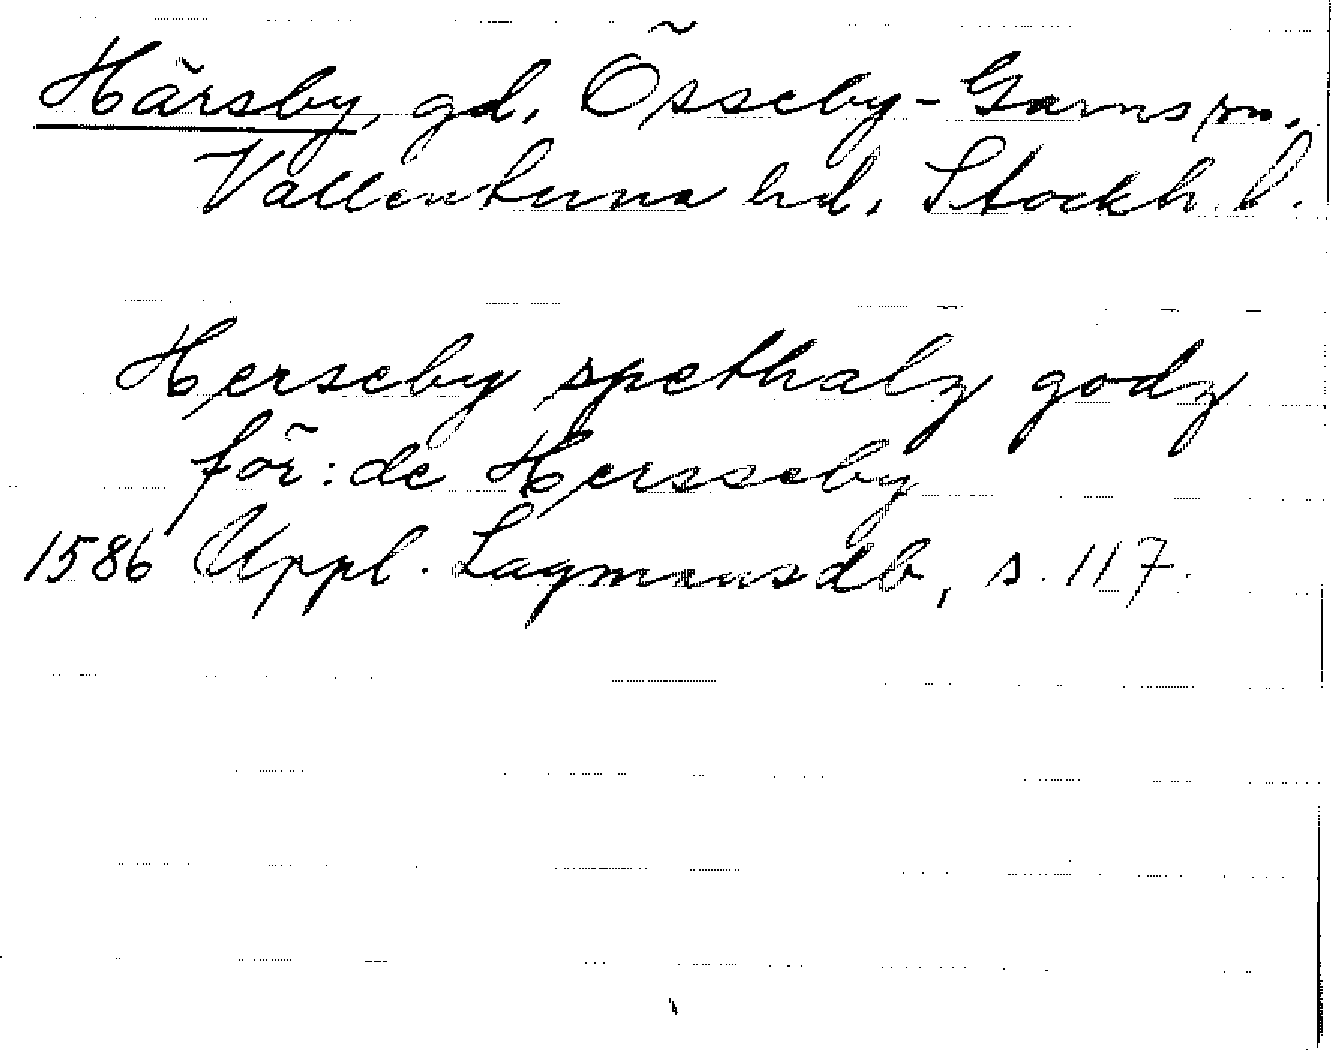 Härsby, gd, Össeby-Garns sn.
Vallentuna hd, Stockh. l.
Herseby spethalz godz
för: de Hersseby
1586 Uppl. Lagmansdb, s. 117.